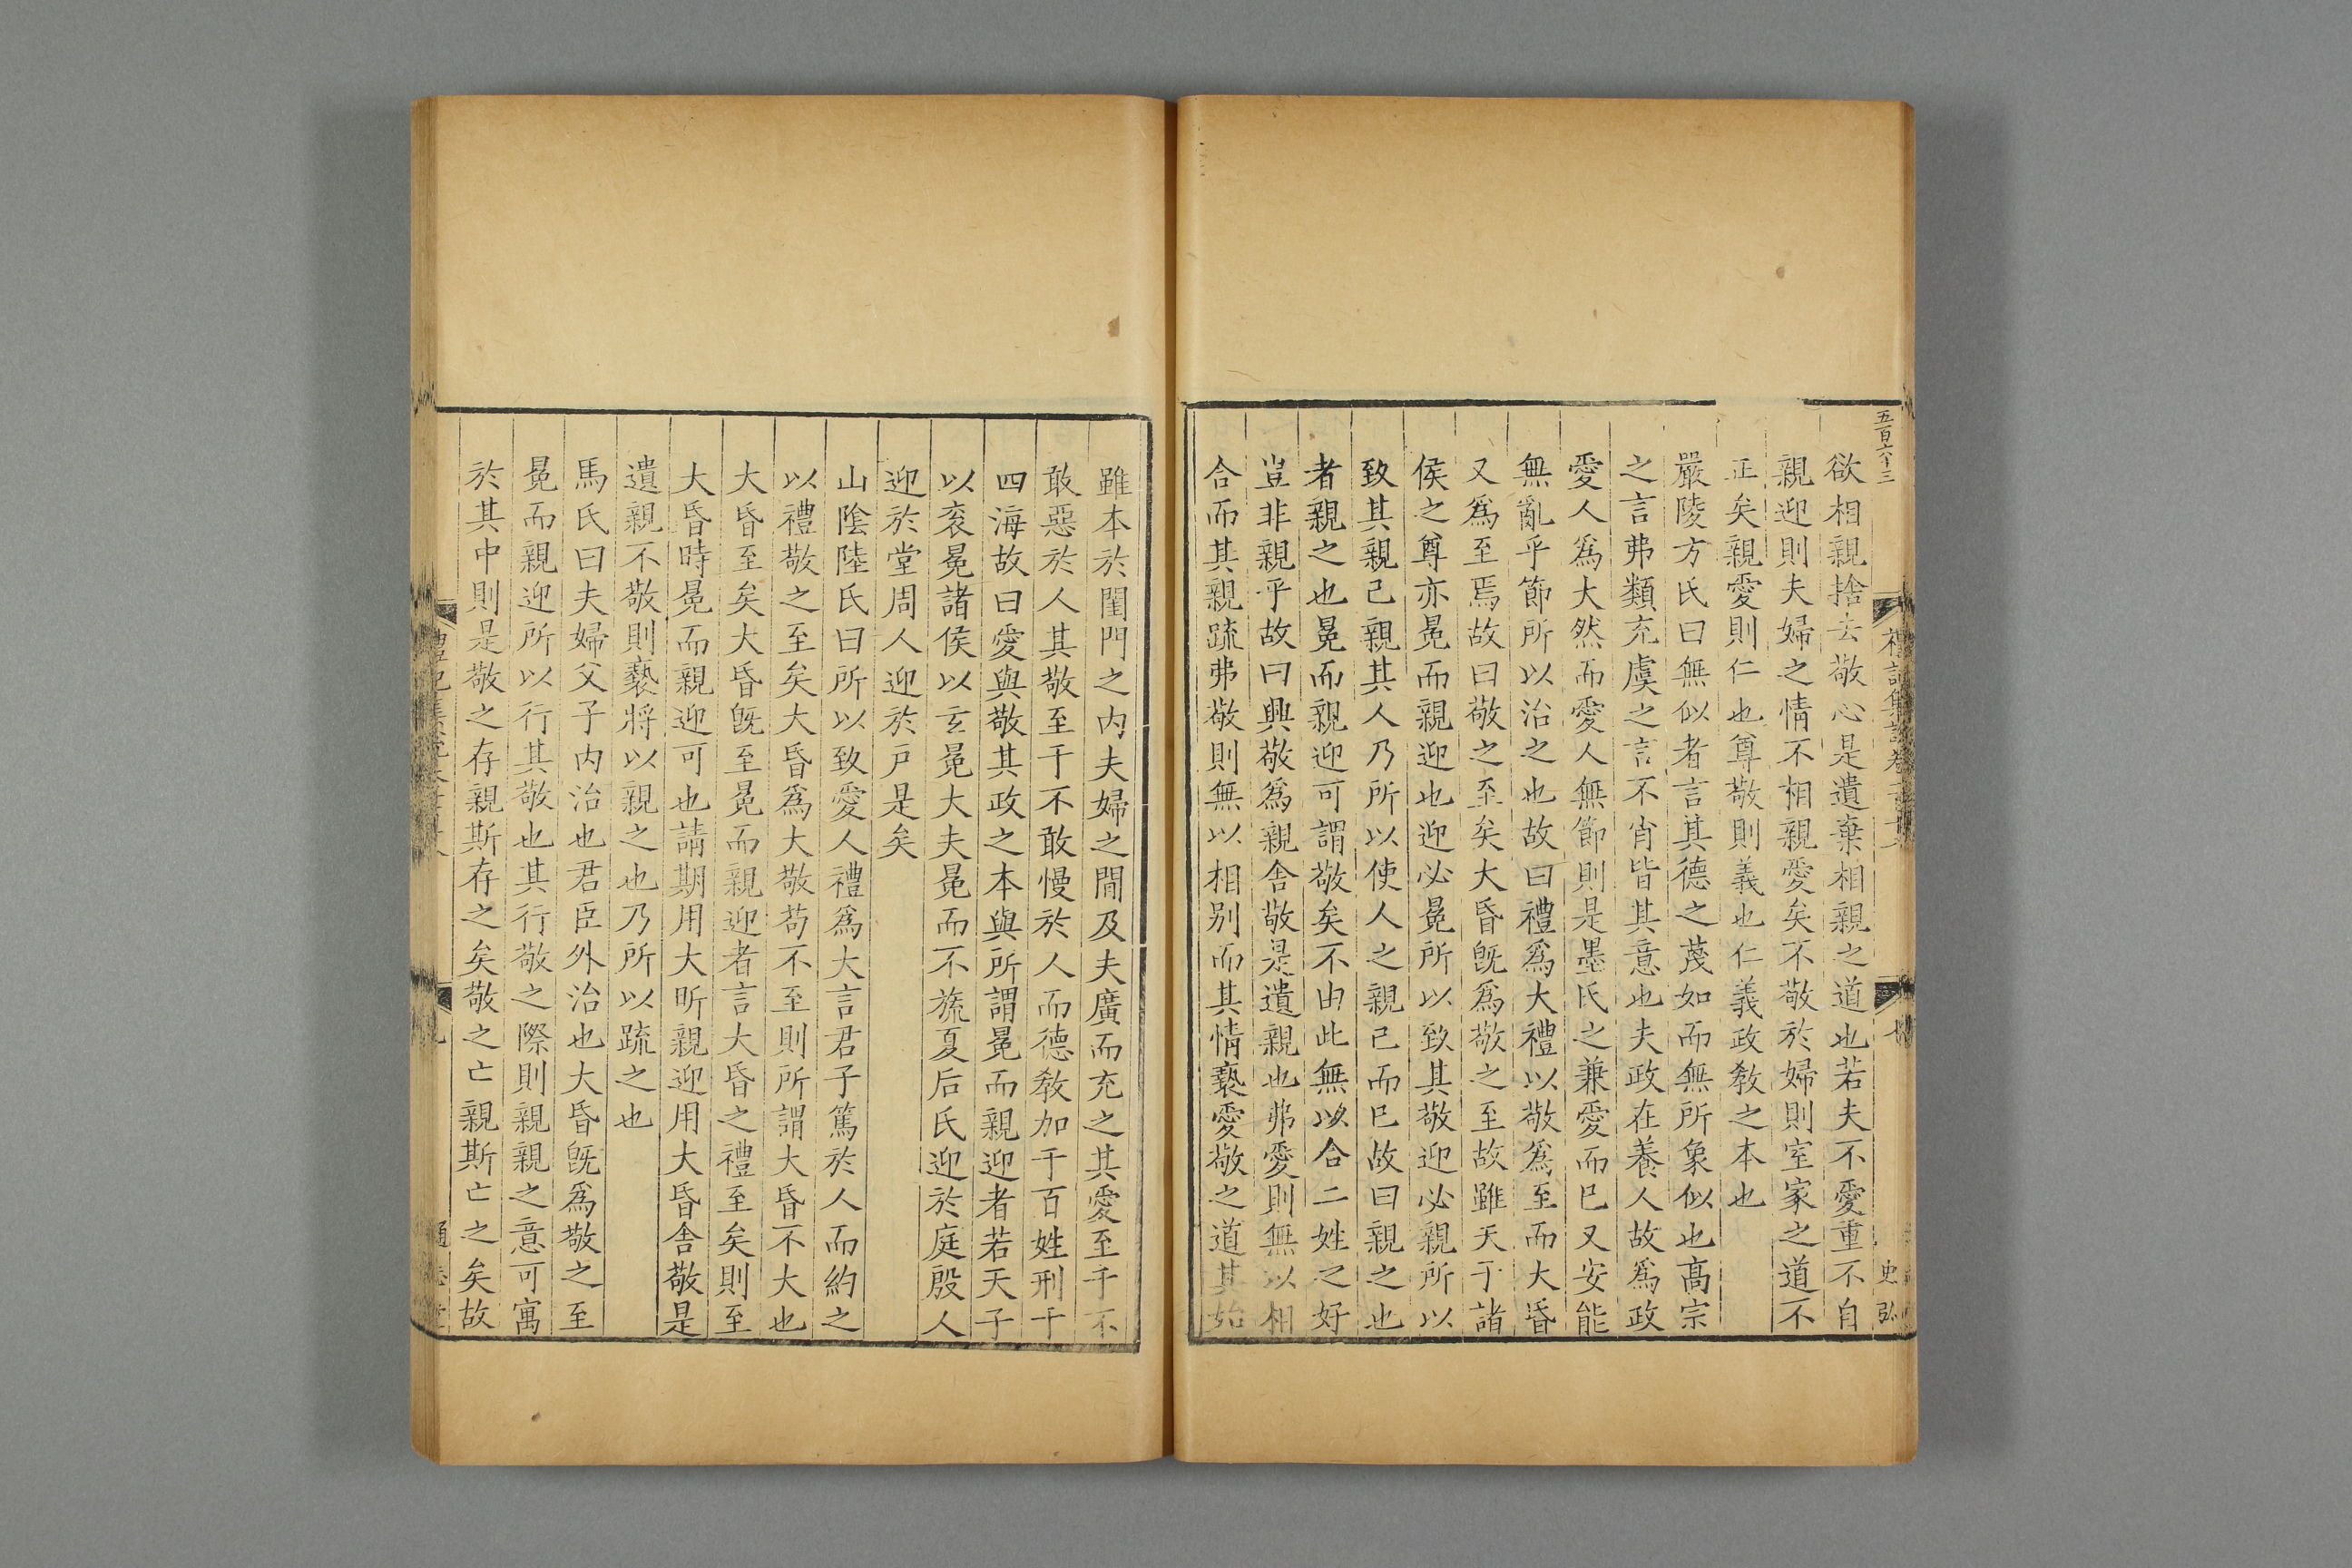 五百六十三
欲相親捨去敬心是遺棄相親之道也若夫不愛重不自
親迎則夫婦之情不相親愛矣不敬於婦則室家之道不
正矣親愛則仁也尊敬則義也仁義政敎之本也
嚴陵方氏曰無似者言其德之薎如而無所象似也髙宗
之言弗類充虞之言不肖皆其意也夫政在養人故爲政
愛人爲大然而愛人無節則是墨氏之兼愛而已又安能
無亂乎節所以治之也故曰禮爲大禮以敬爲至而大昏
又爲至焉故曰敬之至矣大昏旣爲敬之至故雖天子諸
侯之尊亦冕而親迎也迎必冕所以致其敬迎必親所以
致其親己親其人乃所以使人之親己而已故曰親之也
者親之也冕而親迎可謂敬矣不由此無以合二姓之好
豈非親乎故曰興敬爲親舍敬是遺親也弗愛則無以相
合而其親疏弗敬則無以相别而其情䙝愛敬之道其始
雖本於閨門之内夫婦之間及夫廣而充之其愛至于不
敢惡於人其敬至于不敢慢於人而德敎加于百姓刑于
四海故曰愛與敬其政之本與所謂冕而親迎者若天子
以衮冕諸侯以玄冕大夫冕而不旒夏后氏迎於庭殷人
迎於堂周人迎於戸是矣
山陰陸氏曰所以致愛人禮爲大言君子篤於人而約之
以禮敬之至矣大昏爲大敬苟不至則所謂大昏不大也
大昏至矣大昏旣至冕而親迎者言大昏之禮至矣則至
大昏時冕而親迎可也請期用大昕親迎用大昏舍敬是
遺親不敬則䙝將以親之也乃所以疏之也
馬氏曰夫婦父子内治也君臣外治也大昏旣爲敬之至
冕而親迎所以行其敬也其行敬之際則親親之意可寓
於其中則是敬之存親斯存之矣敬之亡親斯亡之矣故